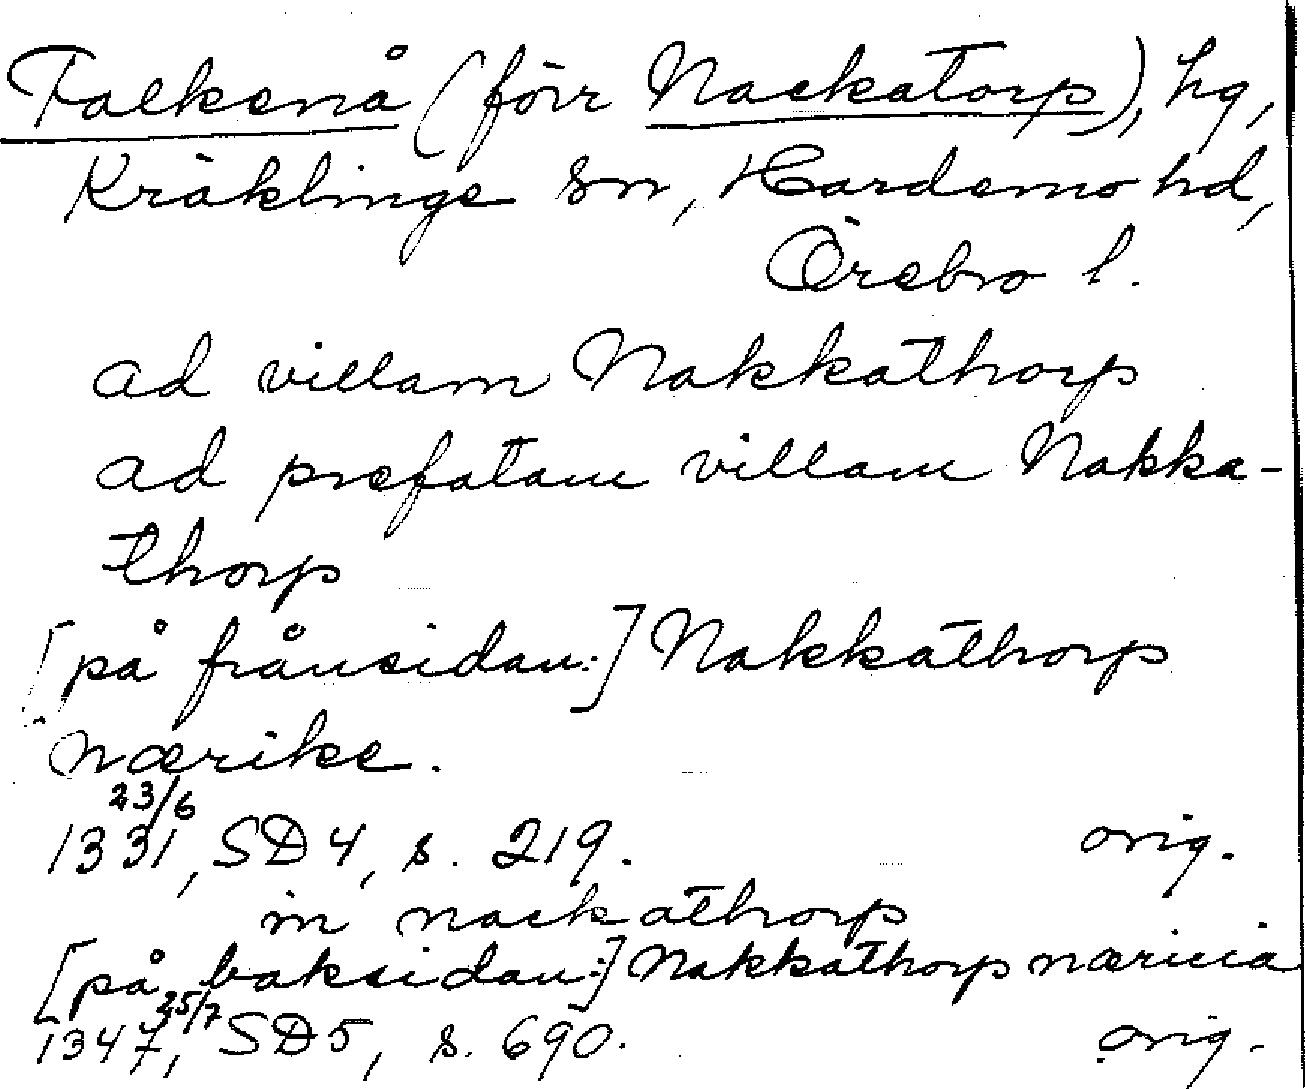 Falkenå (förr Nackatorp), hg,
Kräklinge sn, Hardemo hd,
Örebro l.
ad villam Nakkathorp
ad prefatam villam Nakka-
thorp
[på frånsidan:] Nakkathorp
nærike.
23/6
1331, SD 4, s. 219. orig.
in nackathorp
[på baksidan:] Nakkathorp næricia
25/7
1347, SD 5, s. 690. orig.